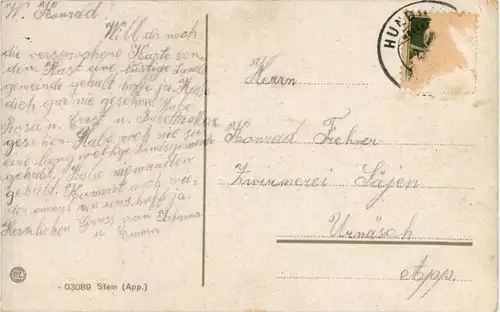 W. Konrad
Will dir noch
die versprochene Karte sen-
den. Hast eine lustige Lands-
gemeinde gehabt hoffe ja. Habe
dich gar nie gesehen. Habe
Rosa u. Ernst u.
gesehen. Habe noch nie so
eine langweilige Landsgemeinde
gehabt. Habe niemanden
gehabt. Kommst auch wie-
der einmal zu uns hoffe ja.
Herzlichen Gruss von Johanna
u. Emma
HUND
Herrn
Konrad Fehner
Zwirnerei Säjen
Urnäsch
App.
PZ
03089 Stein (App.)